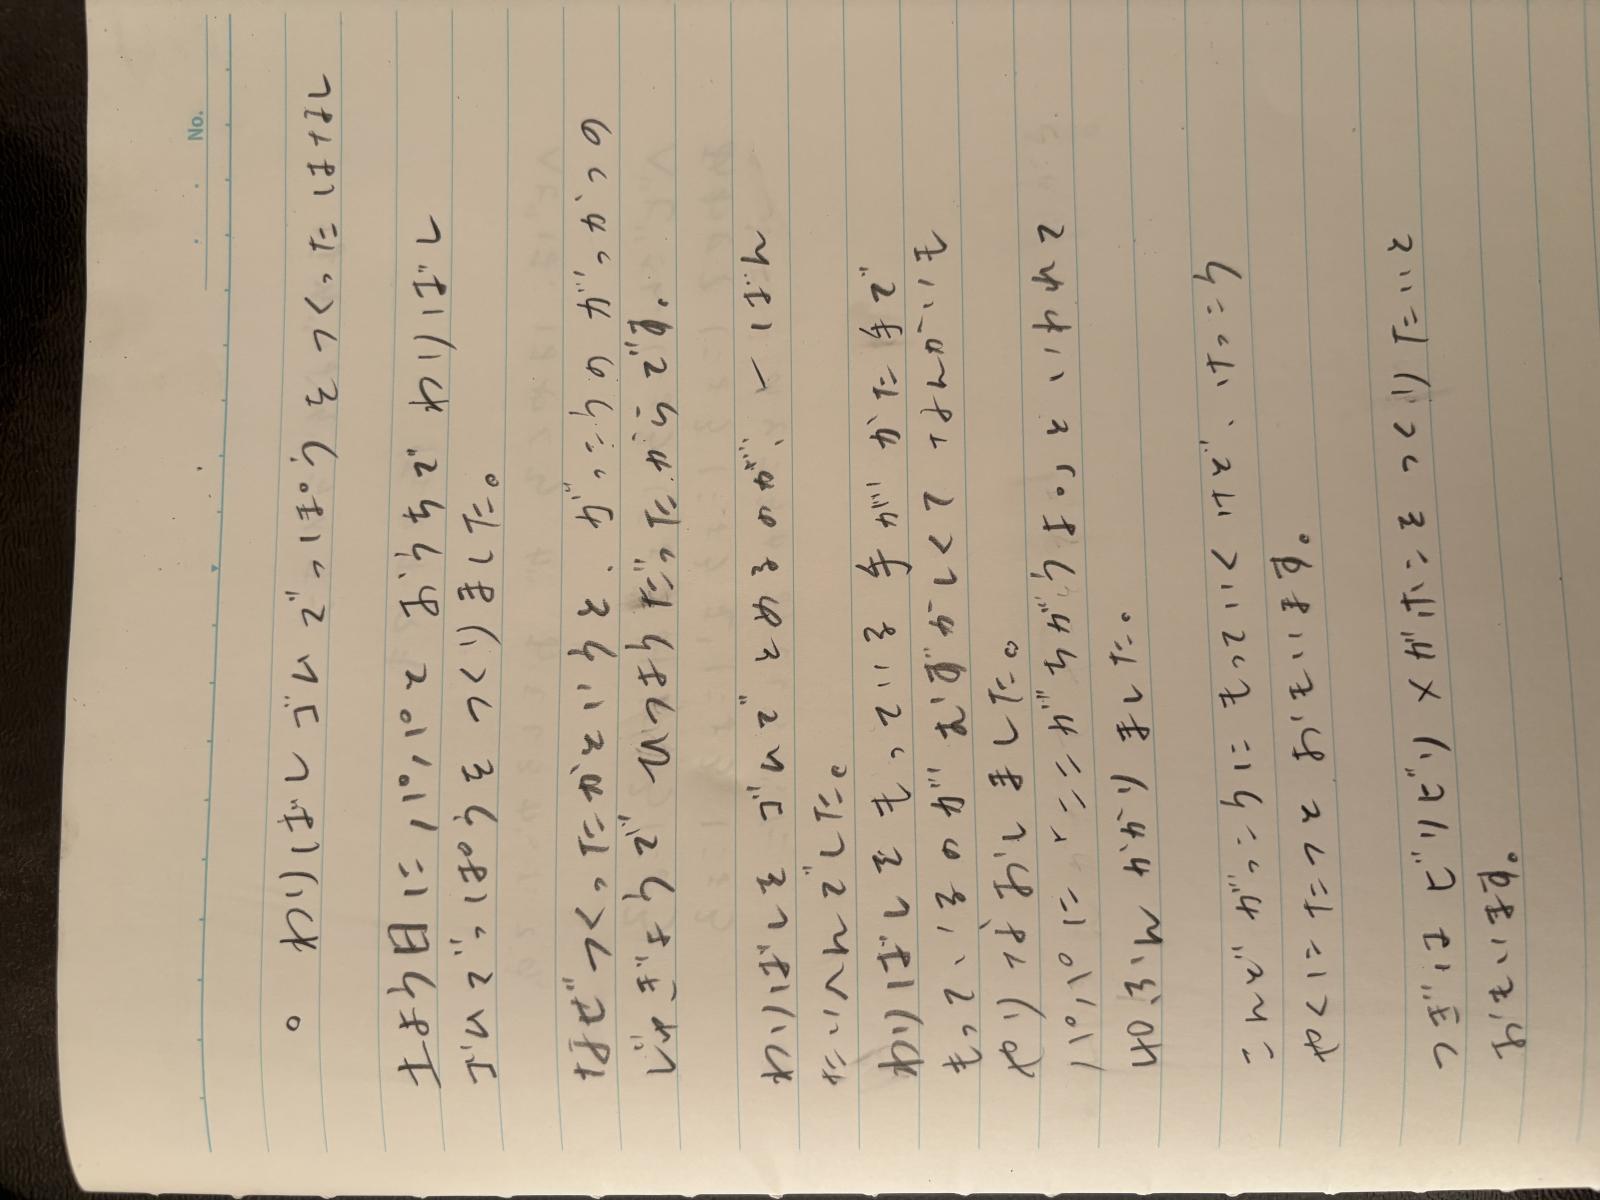 No.
。わりばしゴムでっぽうをつくったはなし
土よう日にパパとおうちでわりばし
ゴムでっぽうをつくりました。
なぜつくったかというと、がっこうのがっかつの
じゅぎょうでひつようだったからです。
わりばしをゴムでとめるのが、一ばん
たいへんでした。
わりばしをもっている手がかた手で
もっているのがむずかしくてなんかいも
やりなおしました。
パパに、ここがちがうよっといわれて
40ふんかかりました。
こんどがっこうにもっていくけど、けっこう
やくにたつとおもいます。
つぎはビリビリメガホンをつくりたいと
おもいます。